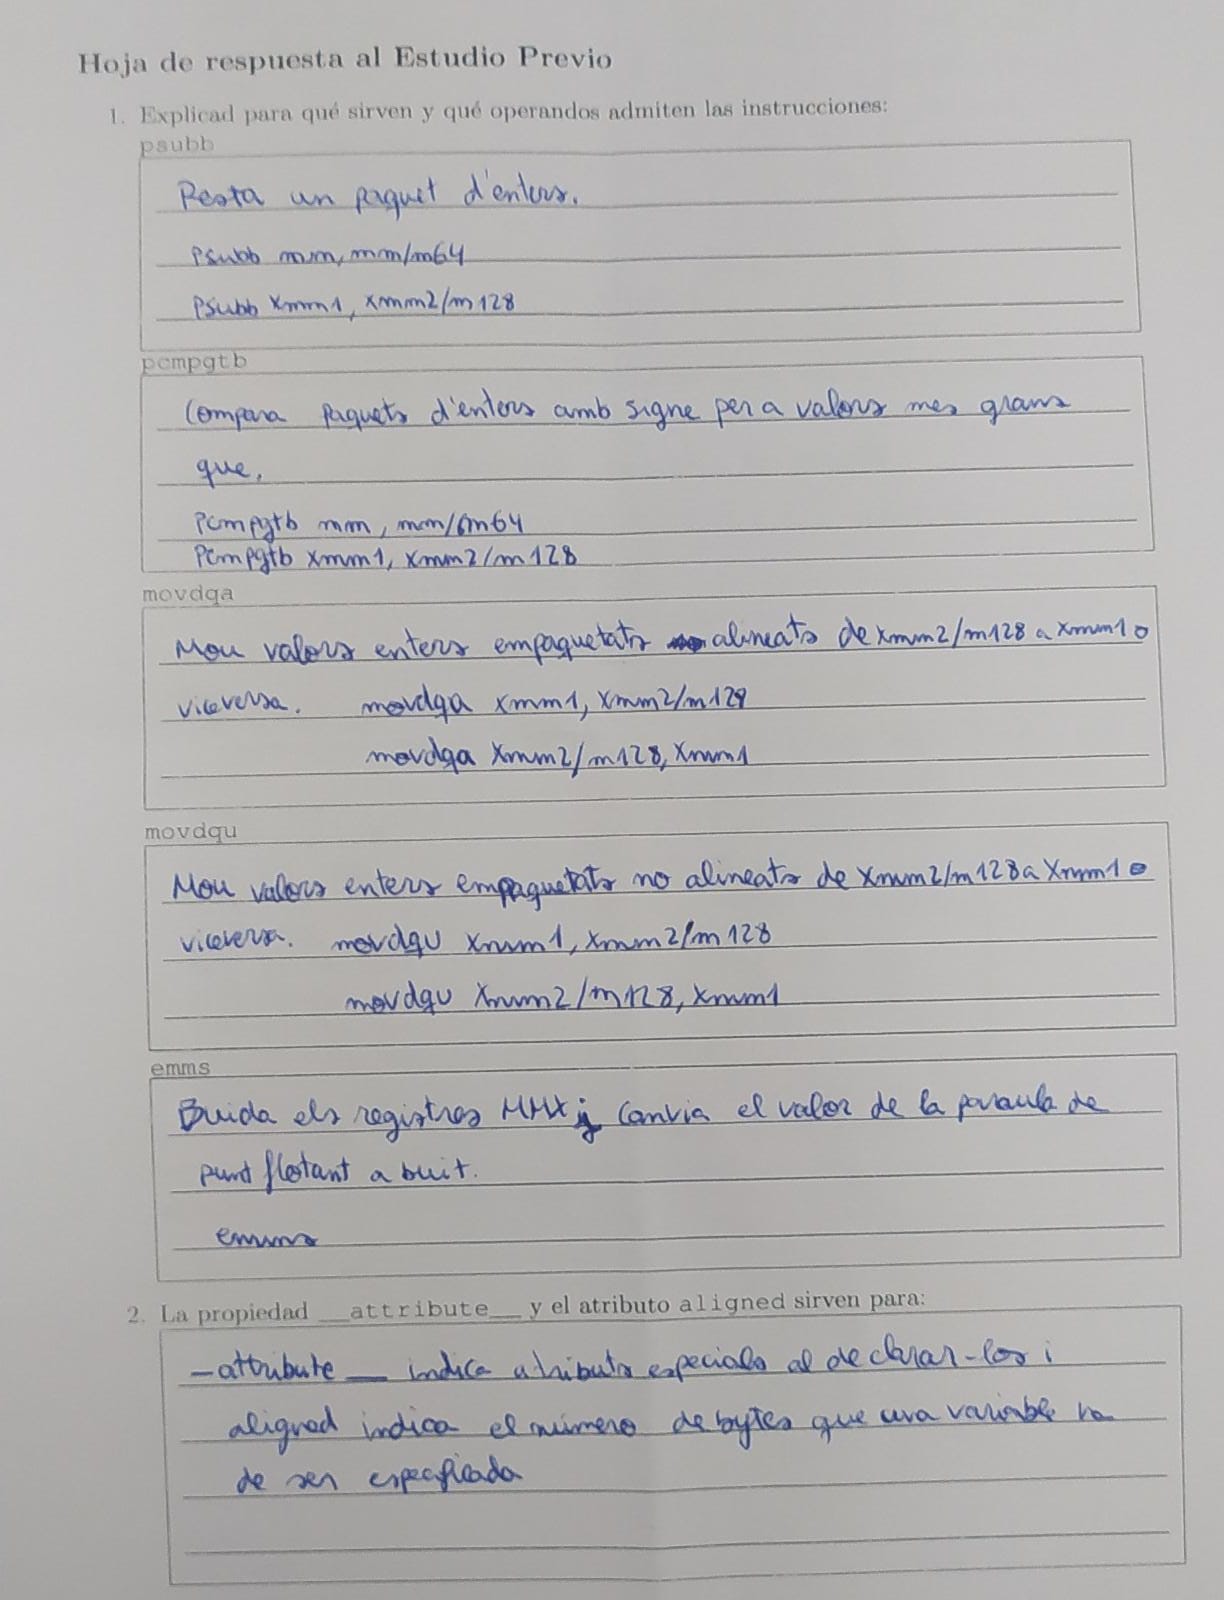 Hoja de respuesta al Estudio Previo
1. Explicad para qué sirven y qué operandos admiten las instrucciones:
psubb
Resta un paquet d'enters.
Psubb mm, mm/m64
Psubb xmm1, xmm2/m128
pcmpgtb
Compara paquets d'enters amb signe per a valors mes grans
que.
Pcmpgtb mm, mm/m64
Pcmpgtb xmm1, xmm2/m128
movdqa
Mou valors enters empaquetats alineats de xmm2/m128 a xmm1 o
viceversa. movdqa xmm1, xmm2/m128
movdqa xmm2/m128, xmm1
movdqu
Mou valors enters empaquetats no alineats de xmm2/m128 a xmm1 o
viceversa. movdqu xmm1, xmm2/m128
movdqu xmm2/m128, xmm1
emms
Buida els registres MMX i canvia el valor de la paraula de
punt flotant a buit.
emms
2. La propiedad __attribute__ y el atributo aligned sirven para:
_attribute__ indica atributs especials al declarar-los i
aligned indica el número de bytes que una variable ha
de ser especificada